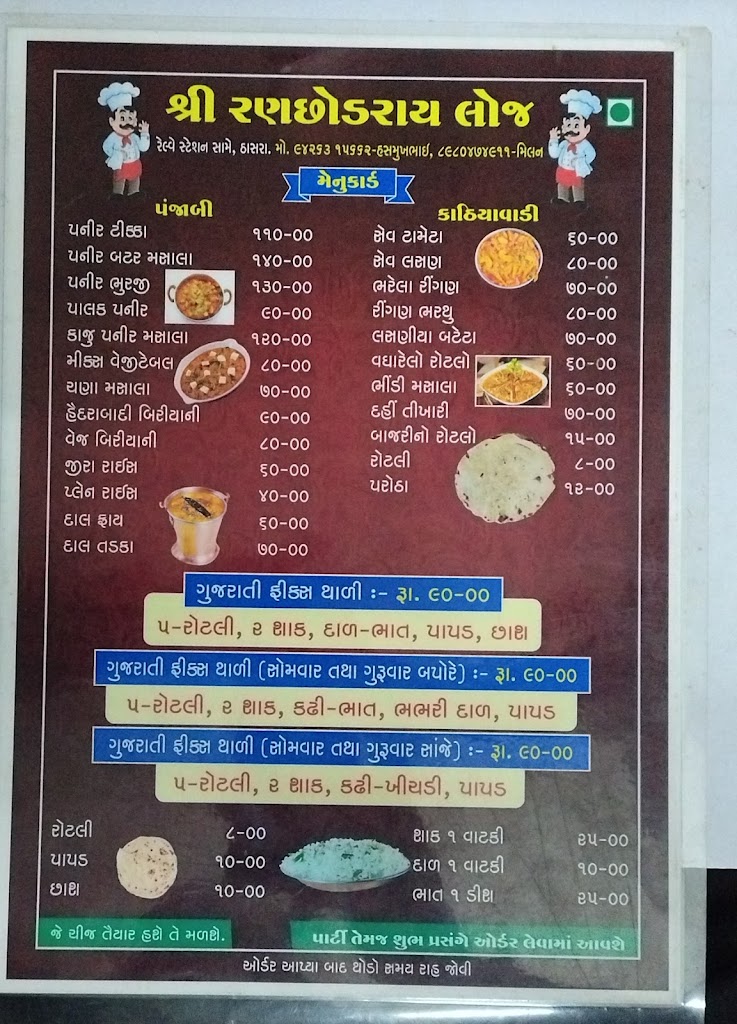 શ્રી રણછોડરાય લોજ
રેલ્વે સ્ટેશન સામે, ઠાસરા. મો. ૯૪૨૬૩ ૧૫૬૬૨-હસમુખભાઇ, ૮૯૮૦૪૭૪૯૧૧-મિલન
મેનુકાર્ડ
પંજાબી
પનીર ટીક્કા ૧૧૦-૦૦
પનીર બટર મસાલા ૧૪૦-૦૦
પનીર ભુરજી ૧૩૦-૦૦
પાલક પનીર ૯૦-૦૦
કાજુ પનીર મસાલા ૧૨૦-૦૦
મીક્સ વેજીટેબલ ૮૦-૦૦
ચણા મસાલા ૭૦-૦૦
હૈદરાબાદી બિરીયાની ૯૦-૦૦
વેજ બિરીયાની ૮૦-૦૦
જીરા રાઈસ ૬૦-૦૦
પ્લેન રાઈસ ૪૦-૦૦
દાલ ફ્રાય ૬૦-૦૦
દાલ તડકા ૭૦-૦૦
કાઠિયાવાડી
સેવ ટામેટા ૬૦-૦૦
સેવ લસણ ૮૦-૦૦
ભરેલા રીંગણ ૭૦-૦૦
રીંગણ ભરથુ ૮૦-૦૦
લસણીયા બટેટા ૭૦-૦૦
વઘારેલો રોટલો ૬૦-૦૦
ભીંડી મસાલા ૬૦-૦૦
દહીં તીખારી ૭૦-૦૦
બાજરીનો રોટલો ૧૫-૦૦
રોટલી ૮-૦૦
પરોઠા ૧૨-૦૦
ગુજરાતી ફીક્સ થાળી :- રૂા. ૯૦-૦૦
૫-રોટલી, ૨ શાક, દાળ-ભાત, પાપડ, છાશ
ગુજરાતી ફીક્સ થાળી (સોમવાર તથા ગુરૂવાર બપોરે) :- રૂા. ૯૦-૦૦
૫-રોટલી, ૨ શાક, કઢી-ભાત, ભભરી દાળ, પાપડ
ગુજરાતી ફીક્સ થાળી (સોમવાર તથા ગુરૂવાર સાંજે) :- રૂા. ૯૦-૦૦
૫-રોટલી, ૨ શાક, કઢી-ખીચડી, પાપડ
રોટલી ૮-૦૦
પાપડ ૧૦-૦૦
છાશ ૧૦-૦૦
શાક ૧ વાટકી ૨૫-૦૦
દાળ ૧ વાટકી ૧૦-૦૦
ભાત ૧ ડીશ ૨૫-૦૦
જે ચીજ તૈયાર હશે તે મળશે.
પાર્ટી તેમજ શુભ પ્રસંગે ઓર્ડર લેવામાં આવશે
ઓર્ડર આપ્યા બાદ થોડો સમય રાહ જોવી